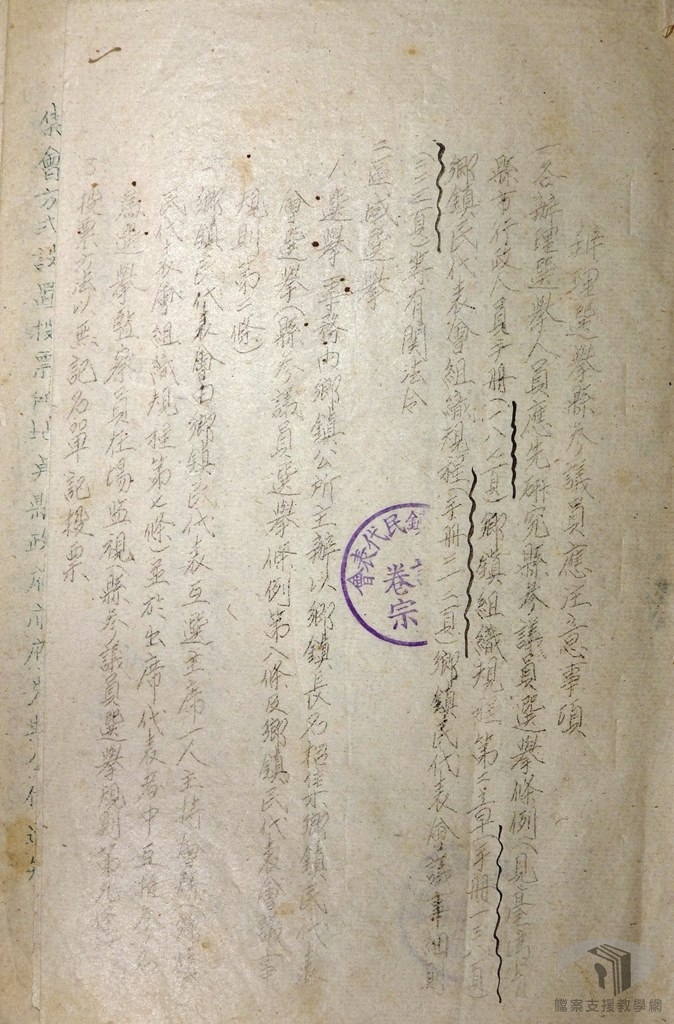 辦理選舉縣參議員應注意事項
一各辦理選舉人員應先研究縣參議員選舉條例(見臺灣省
縣市行政人員手冊(一八七頁)鄉鎮組織規程第二章(手冊一三八頁)
鄉鎮民代表會組織規程(手冊三一二頁)鄉鎮民代表會議事細則
(三三頁)等有関法令
二區域選舉
1.選舉事務由鄉鎮公所主辦以鄉鎮長名招集鄉鎮民代表
會選舉(縣參議員選舉條例第八條及鄉鎮民代表會議事
規則第二條)
鄉鎮民代表會由鄉鎮民代表互選主席一人主持會務
民代表會組織規程第七條)並於出席代表者中互推
為選舉監察員在場監視(縣參議員選舉規則第九條)
3.投票方法以無記名單記投票
集會方式設置投票
鎮民代表會
卷宗
檔案支援教學網